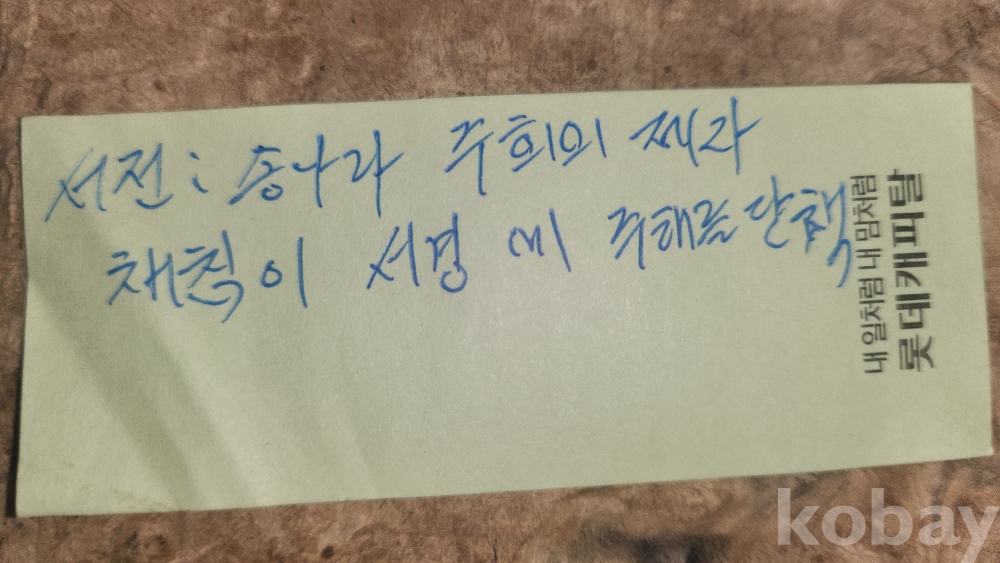 서전: 송나라 주희의 제자
채침이 서경에 주해를 단책
내 일처럼 내 맘처럼
롯데캐피탈
kobay